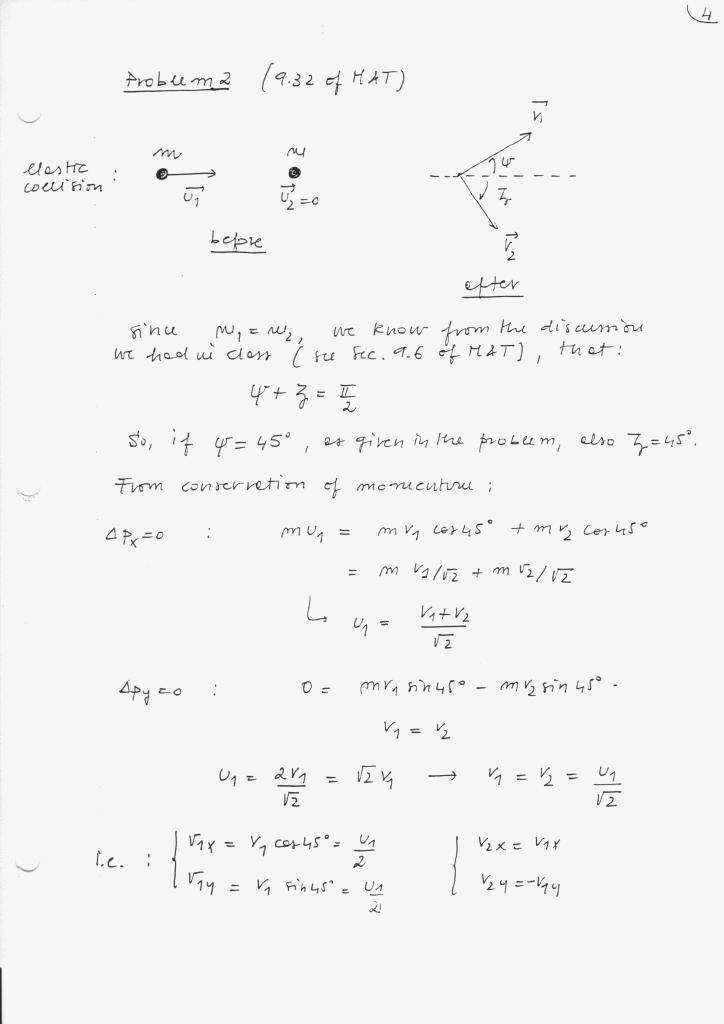 4
Problem 2 (9.32 of MAT)
v₁
m m
elastic
collision :
u₁ u₂ = 0
ψ
ζ
v₂
before
after
Since m₁ = m₂, we know from the discussion
we had in class (see Sec. 9.6 of MAT), that:
ψ + ζ = π/2
So, if ψ = 45°, as given in the problem, also ζ = 45°.
From conservation of momentum ;
Δpx = 0 : m u₁ = m v₁ cos 45° + m v₂ cos 45°
= m v₁/√2 + m v₂/√2
↳ u₁ = (v₁ + v₂)/√2
Δpy = 0 : 0 = m v₁ sin 45° - m v₂ sin 45° .
v₁ = v₂
u₁ = 2v₁/√2 = √2 v₁ → v₁ = v₂ = u₁/√2
i.e. : { v₁x = v₁ cos 45° = u₁/2 { v₂x = v₁x
v₁y = v₁ sin 45° = u₁/2 v₂y = -v₁y